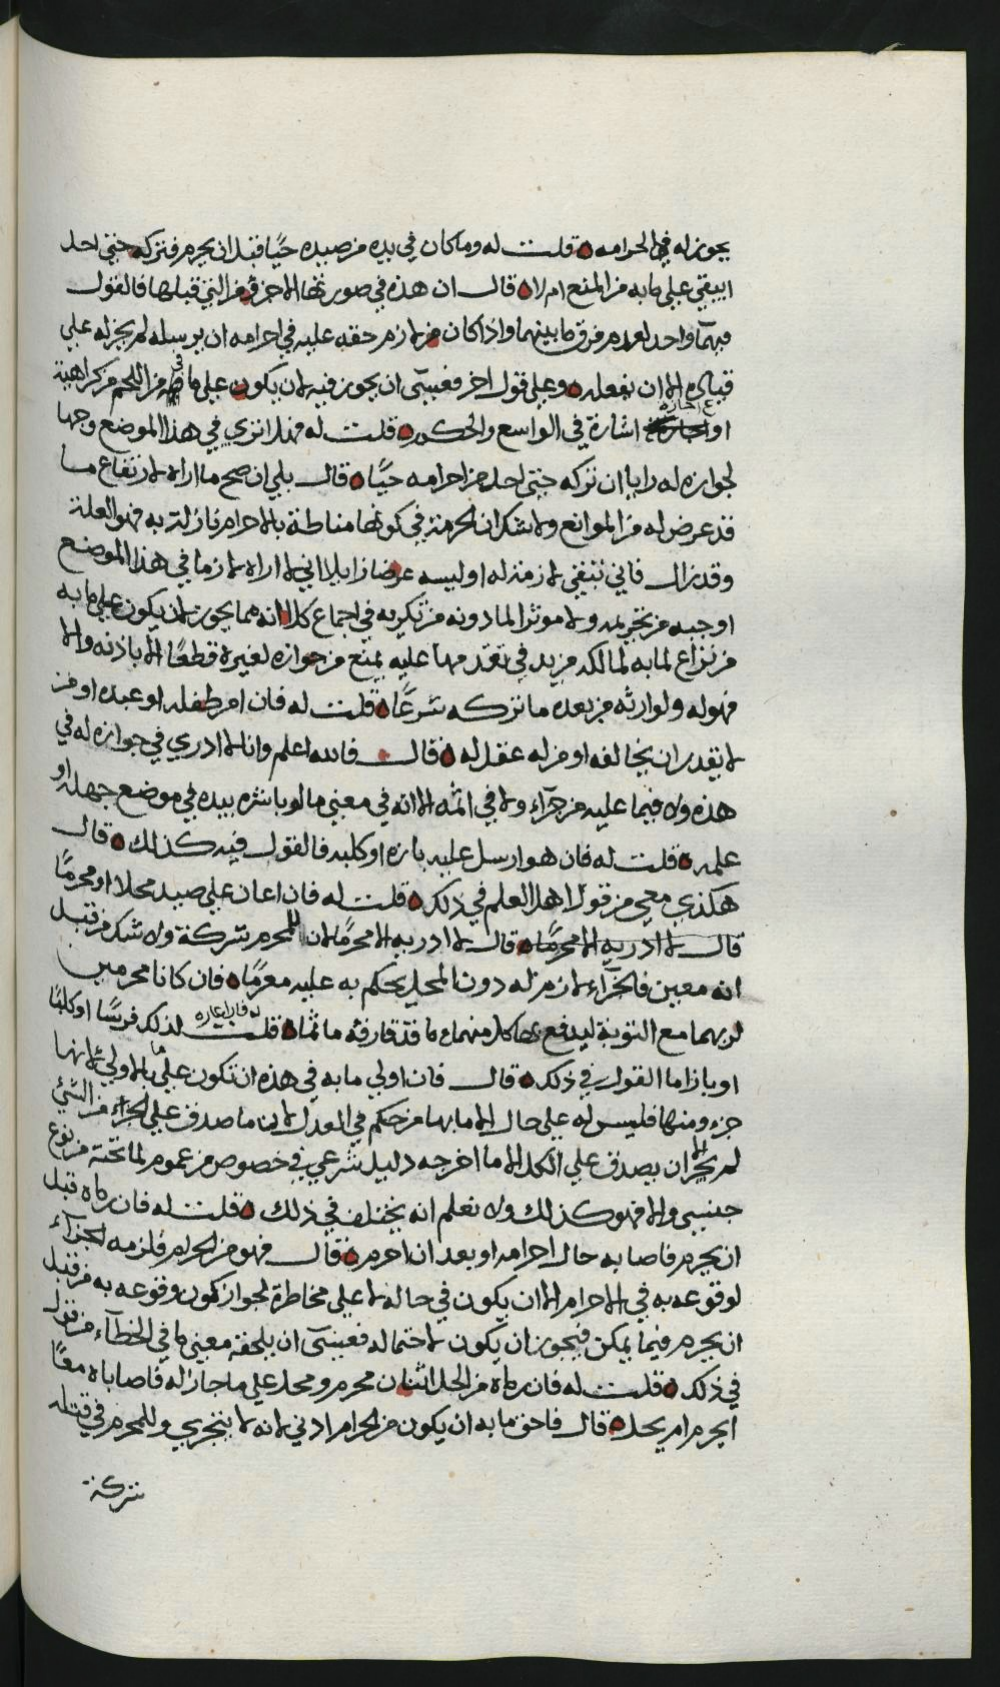 يجوز له في احرامه قلت له وما كان في يده من صيده حيا قبل ان يحرم فتركه حتى احل
ايبقى على ما به من المنع ام لا قال ان هذه في صورتها لاحرى من التي قبلها فالقول
فيهما واحد لعدم فرق ما بينهما واذا كان من لازم حقه عليه في احرامه ان يرسله لم يجز له على
قياده الا ان يفعله وعلى قول اخر فعسى ان يجوز فيه لان يكون على ما في من اللحم من كراهية
او اجازة اشارة في الواسع والحكم قلت له فهل ترى في هذا الموضع وجها
لجوازه له رايا ان تركه حتى احل من احرامه حيا قال بلى ان صح ما اراه لارتفاع ما
قد عرض له من الموانع ولا شك ان الحرمة في كونها مناطة بالاحرام نازلة به فهو العلة
وقد زال فاني تبقى لازمة له اوليسه عرضا زايلا اني لا اراه لازما في هذا الموضع
اوجبه من تحريمه ولا موثرا لما دونه من تكريه في اجماع كلا انه مما يجوز لان يكون على ما به
من نزاع لما به لمالكه من يد في تقدمها عليه يمنع من جوازه لغيره قطعا الا باذنه والا
فهو له ولوارثه من بعده ما تركه شرعا قلت له فان امر طفله او عبده او من
لا يقدر ان يخالفه او من له عقل له قال فالله اعلم وانا لا ادري في جوازه له في
هذه ولا فيما عليه من جزاء ولا في اثمه الا انه في معنى ما لو باشره بيده في موضع جهله او
علمه قلت له فان هو ارسل عليه بازه او كلبه فالقول فيه كذلك قال
هكذى معي من قول اهل العلم في ذلك قلت له فان اعان على صيد محلا او محرما
قال لا ادر به الا محرما قال لا ادر به الا محرما لان للمحرم شركة ولا شك من قبل
انه معين فالجزاء لازم له دون المحل يحكم به عليه مغرما فان كانا محرمين
لزمهما مع التوبة ليدفع بها كل منهما ما قد قارفه ماثما قلت له فان اعاره لذلك فرسا او كلبا
او بازا ما القول في ذلك قال فان اولى ما به في هذه ان تكون على ما بالاولى لانها
جزء ومنها فليس له على حال الا ما بها من حكم في العدل لان ما صدق على الجزء من الشي
لم يجز الا ان يصدق على الكل الا ما اخرجه دليل شرعي في خصوص من عموم لما تحته من نوع
جنسي والا فهو كذلك ولا نعلم انه يختلف في ذلك قلت له فان رماه قبل
ان يحرم فاصابه حال احرامه او بعد ان احرم قال فهو من الحرام فلزمه الجزاء
لوقوعه به في الاحرام الا ان يكون في حاله لا على مخاطرة لجواز كون وقوعه به من قبل
ان يحرم فيما يمكن فيجوز ان يكون لاحتماله فعسى ان يلحقه معنى ما في الخطاء من قول
في ذلك قلت له فان رماه من الحل اثنان محرم ومحل على ما جاز له فاصاباه معا
ايحرم ام يحل قال فاحق ما به ان يكون من الحرام ادنى لانه لا يتجزى وللمحرم في قتله
شركة